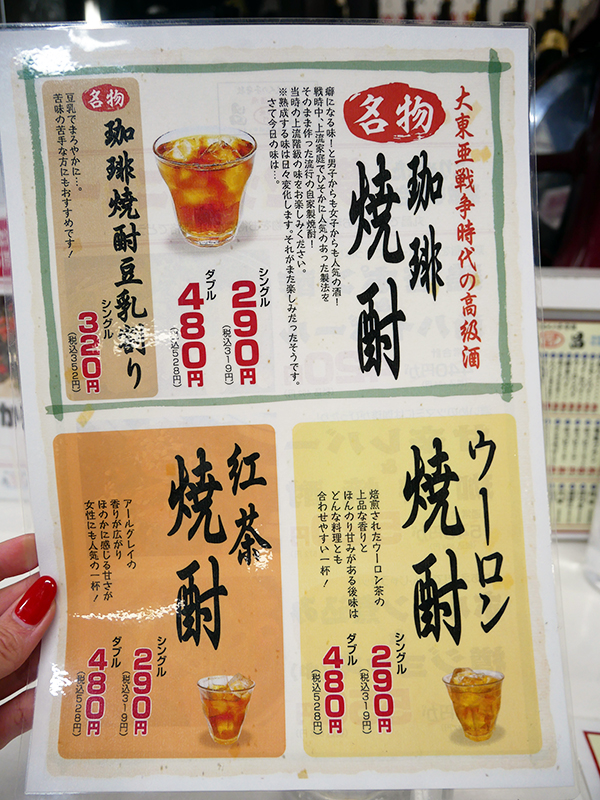 大東亜戦争時代の高級酒
名物
珈琲
焼酎
癖になる味!と男子からも女子からも人気の酒!
戦時中、上流家庭でひそかに人気のあった製法を
そのまま作った流行の自家製焼酎!
当時の上流階級の味をお楽しみください。
※熟成する味は日々変化します。それがまた楽しみだったそうです。
さて今日の味は…。
シングル
290円
(税込319円)
ダブル
480円
(税込528円)
名物
珈琲焼酎豆乳割り
豆乳でまろやかに…。
苦味の苦手な方にもおすすめです!
シングル
320円
(税込352円)
ウーロン
焼酎
焙煎されたウーロン茶の
上品な香りと
ほんのり甘みがある後味は
どんな料理とも
合わせやすい一杯!
シングル
290円
(税込319円)
ダブル
480円
(税込528円)
紅茶
焼酎
アールグレイの
香りが広がり
ほのかに感じる甘さが
女性にも人気の一杯!
シングル
290円
(税込319円)
ダブル
480円
(税込528円)